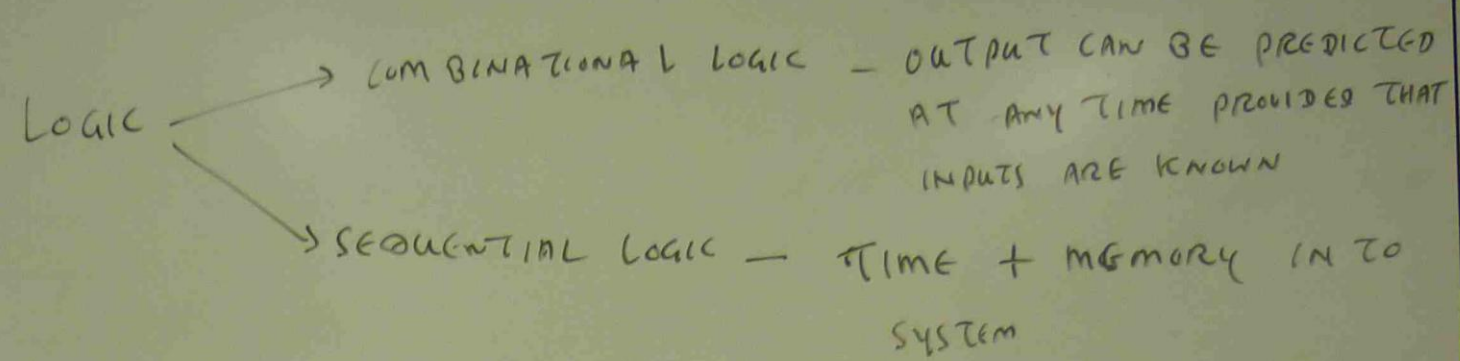 LOGIC
COMBINATIONAL LOGIC - OUTPUT CAN BE PREDICTED
AT ANY TIME PROVIDED THAT
INPUTS ARE KNOWN
SEQUENTIAL LOGIC - TIME + MEMORY IN TO
SYSTEM